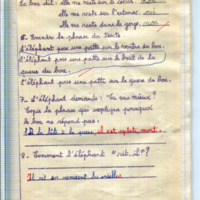 Le boa dit : elle me reste sur le cœur. non
elle me reste sur l'estomac. oui
elle me reste dans la gorge. non
6. Encadre la phrase du texte
L'éléphant pose une patte sur le ventre du boa.
L'éléphant pose une patte sur le bout de la
queue du boa.
L'éléphant pose une patte sur la queue du boa.
7. L'éléphant demande : "Tu vas mieux"?
Copie la phrase qui explique pourquoi
le boa ne répond pas :
De la tête à la queue, il est aplati, mort.
8. Comment l'éléphant "rit-il"?
Il rit en remuant les oreilles.